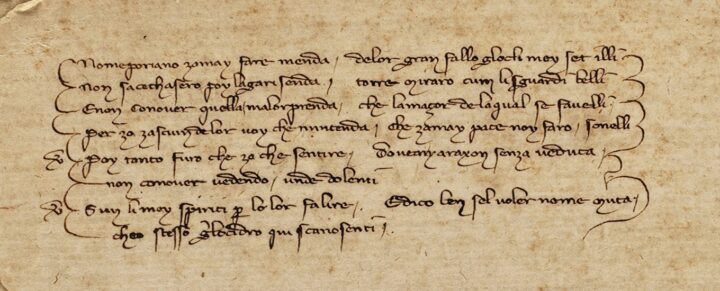 Nomeporiano zamay fare menda, delor gran fallo glocli mey set illi
Non sacechasero poy lagarisenda, torre miraro cum lisguardi belli
Enon conover quella, malorprenda, che lamaçor deloqual se favelli,
Per zo zascun delor voy che mintenda, che zamay pace noy faro, sonelli
Poy tanto furo che zo che sentire, Doveany araxon senza veduta,
non conover vedendo, unde dolenti
Sun li mey spiriti p lo lor falire, Edico ben sel voler nome muta,
cheo stesso glocidro qui scanosenti,